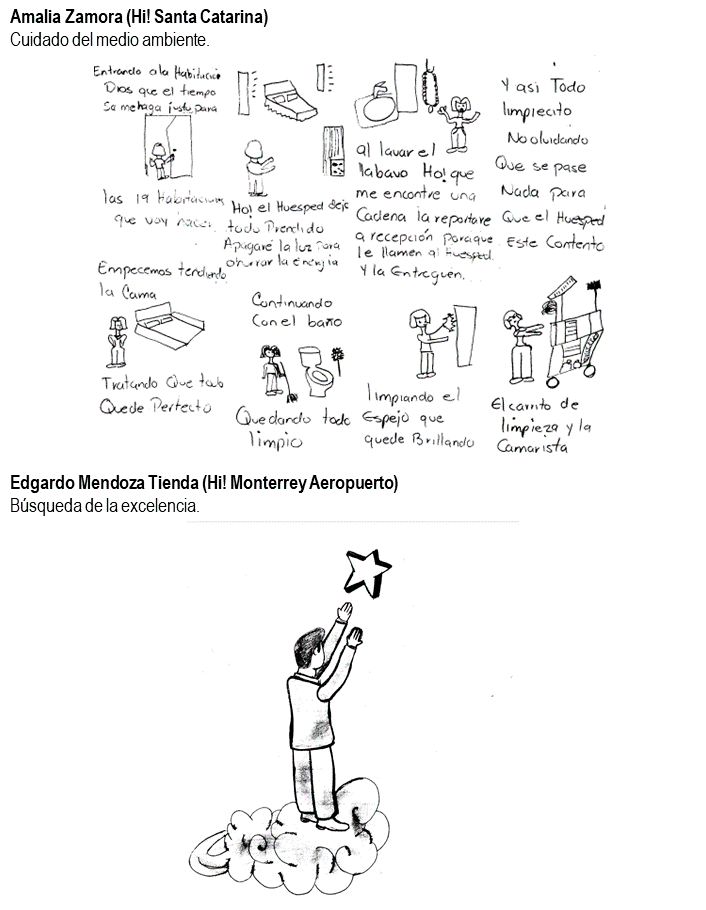 Amalia Zamora (Hi! Santa Catarina)
Cuidado del medio ambiente.
Entrando a la Habitacio
Dios que el tiempo
Se me haga justo para
las 19 Habitaciones
que voy hacer.
Hoi el Huesped dejo
todo Prendido
Apagaré la luz Para
ahorrar la Energia
al lavar el
labavo Ho! que
me encontre una
Cadena la reportare
a recepción para que
le llamen al Huesped
Y la Entreguen.
Y asi Todo
limpiecito
No olvidando
Que se pase
Nada para
Que el Huesped
Este Contento
Empecemos tendiendo
la Cama
Tratando Que todo
Quede Perfecto
Continuando
Con el baño
Quedando todo
limpio
limpiando el
Espejo que
quede Brillando
El carrito de
limpieza y la
Camarista
Edgardo Mendoza Tienda (Hi! Monterrey Aeropuerto)
Búsqueda de la excelencia.